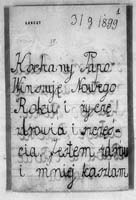 31/9 1899
Kochany Pano
Winszuję Nowego
Roku i życzę
zdrowia i szczęś-
cia Jestem zdrów
i mniej kaszlam